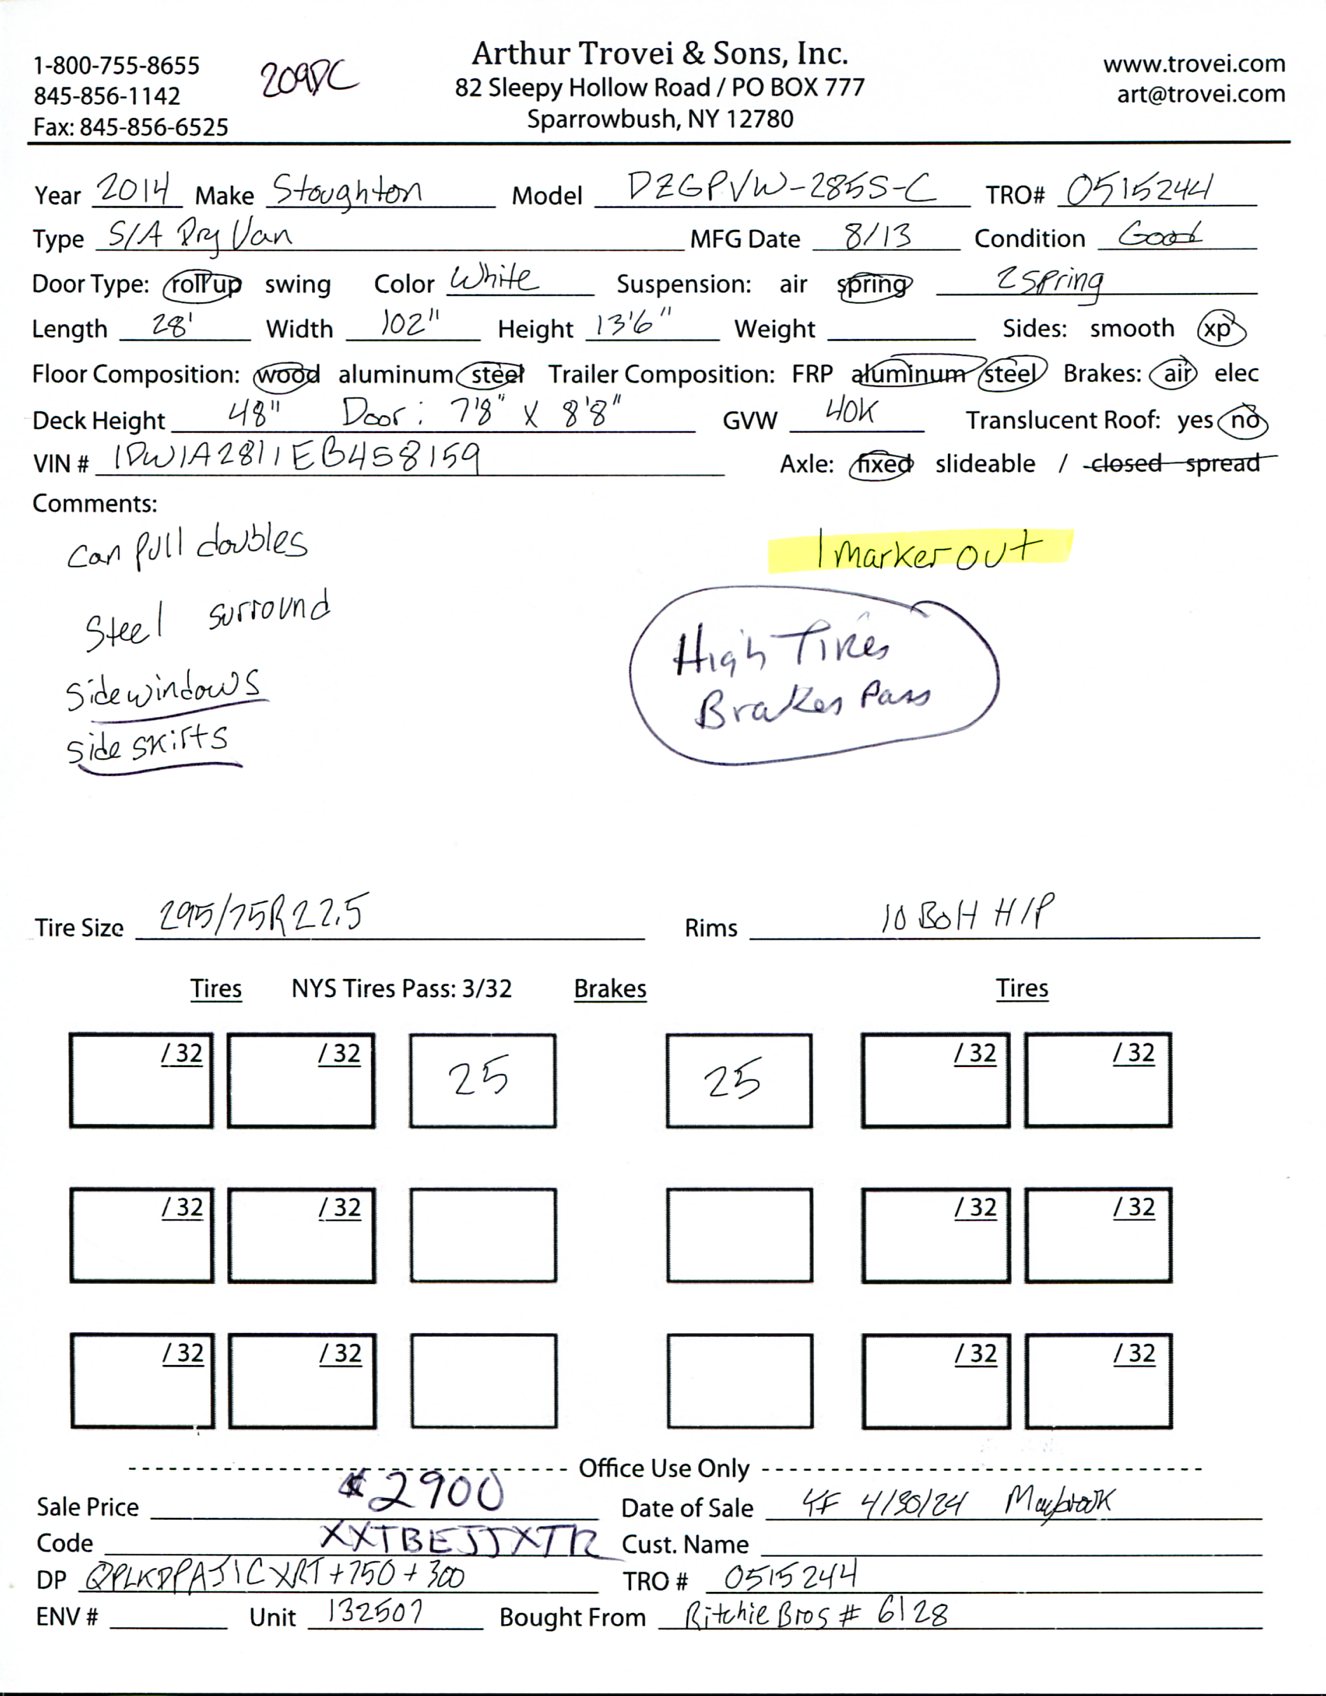 1-800-755-8655
845-856-1142
Fax: 845-856-6525
209DC
Arthur Trovei & Sons, Inc.
82 Sleepy Hollow Road / PO BOX 777
Sparrowbush, NY 12780
www.trovei.com
art@trovei.com
Year 2014 Make Stoughton Model DZGPVW-285S-C TRO# 0515244
Type S/A Dry Van MFG Date 8/13 Condition Good
Door Type: roll up swing Color White Suspension: air spring 2 spring
Length 28' Width 102" Height 13'6" Weight Sides: smooth xp
Floor Composition: wood aluminum steel Trailer Composition: FRP aluminum steel Brakes: air elec
Deck Height 48" Door: 7'8" X 8'8" GVW 40K Translucent Roof: yes no
VIN # 1DW1A2811EB458159 Axle: fixed slideable / closed spread
Comments:
can pull doubles
1 marker out
Steel surround
High Tires
Brakes Pass
side windows
side skirts
Tire Size 295/75R22.5 Rims 10 BoH H/P
Tires NYS Tires Pass: 3/32 Brakes Tires
/ 32 / 32 25 25 / 32 / 32
/ 32 / 32 / 32 / 32
/ 32 / 32 / 32 / 32
Office Use Only
Sale Price $2900 Date of Sale YF 4/30/24 Maybrook
Code XXTBEJJXTR Cust. Name
DP QPLKDPAJICXRT+750+300 TRO # 0515244
ENV # Unit 132507 Bought From Ritchie Bros # 6128